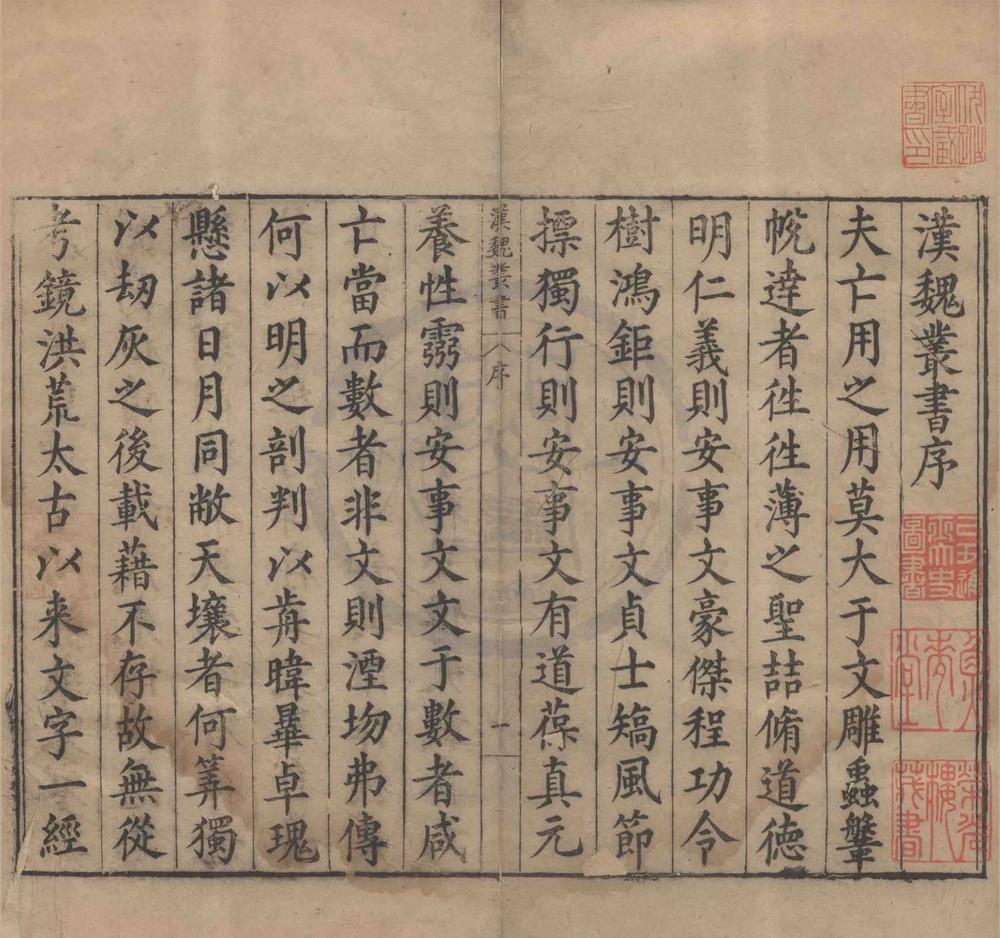 漢魏叢書序
夫亡用之用莫大于文雕蟲鞶
帨達者徃徃薄之聖喆脩道德
明仁義則安事文豪傑程功令
樹鴻鉅則安事文貞士矯風節
摽獨行則安事文有道葆真元
養性靈則安事文文于數者咸
漢魏叢書 序 一
亡當而數者非文則湮圽弗傳
何以明之剖判以歬暐曅卓瑰
懸諸日月同敝天壤者何筭獨
以劫灰之後載藉不存故無從
考鏡洪荒太古以来文字一經